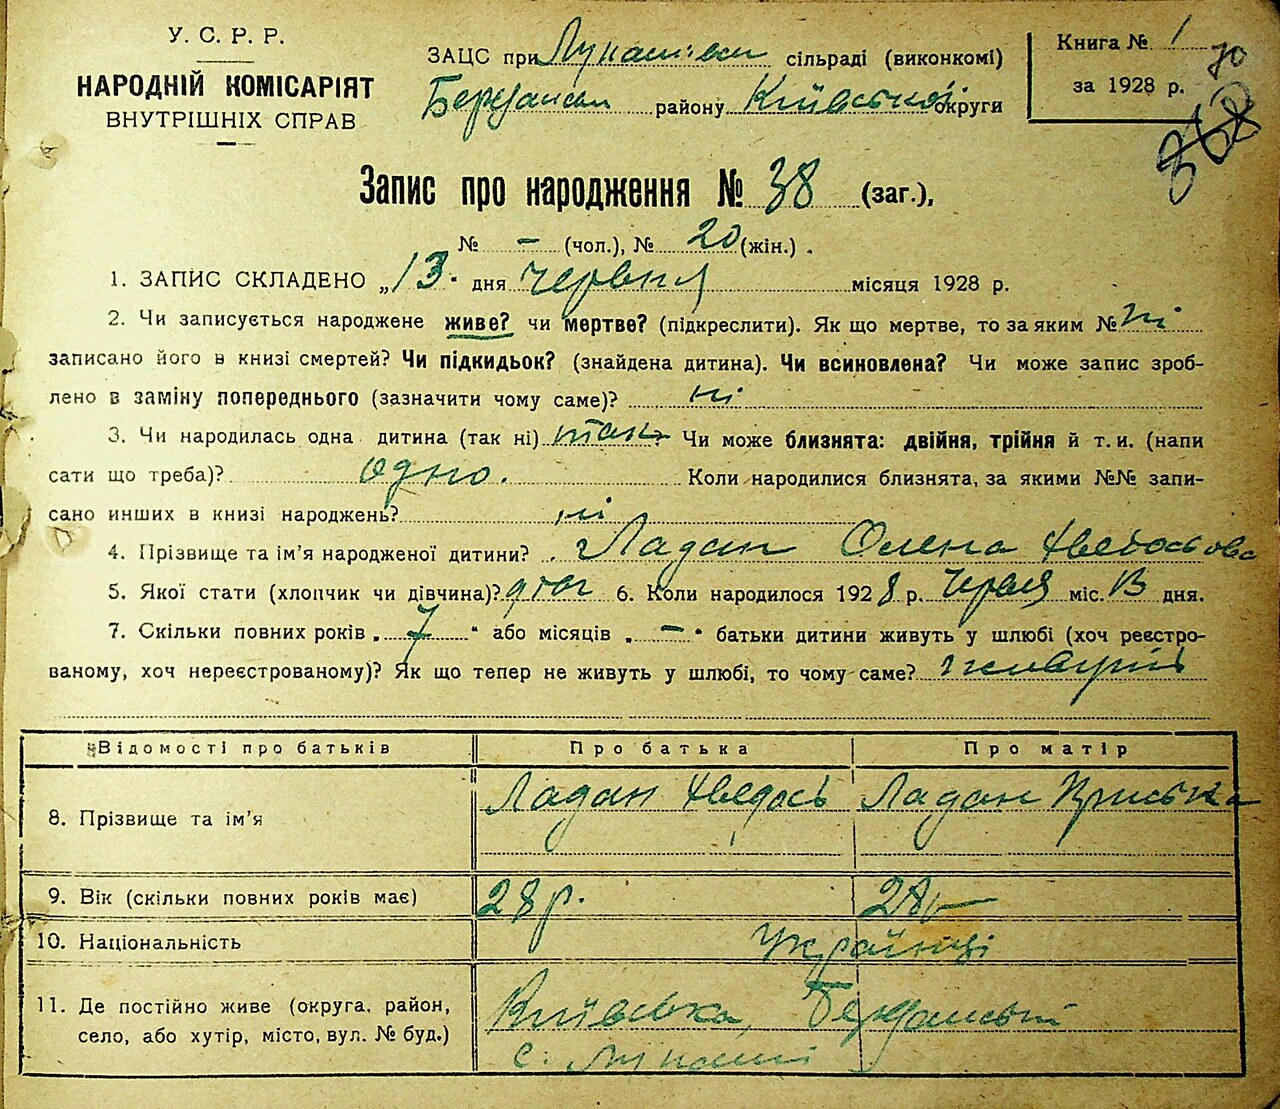 У. С. Р. Р.
НАРОДНІЙ КОМІСАРІЯТ
ВНУТРІШНІХ СПРАВ
ЗАЦС при Лукашівськ сільраді (виконкомі)
Березанськ району Київської округи
Книга № 1
за 1928 р.
70
368
Запис про народження № 38 (заг.),
№ – (чол.), № 20 (жін.) .
1. ЗАПИС СКЛАДЕНО „13. дня червня місяця 1928 р.
2. Чи записується народжене живе? чи мертве? (підкреслити). Як що мертве, то за яким № ні
записано його в книзі смертей? Чи підкидьок? (знайдена дитина). Чи всиновлена? Чи може запис зроб-
лено в заміну попереднього (зазначити чому саме)? ні
3. Чи народилась одна дитина (так ні) так Чи може близнята: двійня, трійня й т. и. (напи
сати що треба)? одно. Коли народилися близнята, за якими №№ запи-
сано инших в книзі народжень? ні
4. Прізвище та ім'я народженої дитини? Ладан Олена Хведосьова
5. Якої стати (хлопчик чи дівчина)? 6. Коли народилося 1928 р. червня міс. 13 дня.
7. Скільки повних років „ 7 “ або місяців „ – “ батьки дитини живуть у шлюбі (хоч реєстро-
ваному, хоч нереєстрованому)? Як що тепер не живуть у шлюбі, то чому саме? живуть
Відомості про батьків Про батька Про матір
8. Прізвище та ім'я Ладан Хведось Ладан Приська
9. Вік (скільки повних років має) 28 р. 28 р
10. Національність Українці
11. Де постійно живе (округа, район, Київська, Березанський
село, або хутір, місто, вул. № буд.) с. Лукаші